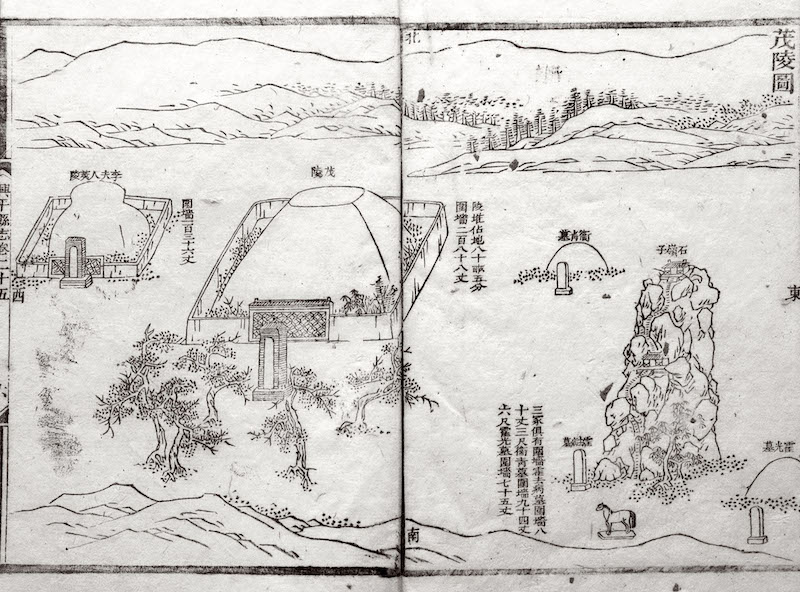 茂陵圖
北
東
石嶺子
衛青墓
霍光墓
陵堆佔地八十畝五分
圍墻二百八十八丈
三冢俱有圍墻霍去病墓圍墻八
十丈三尺衛青墓圍墻九十四丈
六尺霍光墓圍墻七十五丈
南
茂陵
圍墻一百三十六丈
李夫人英陵
西
興平縣志卷二十五